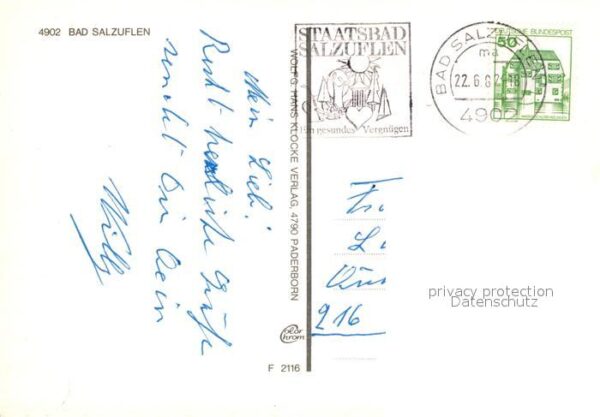 4902 BAD SALZUFLEN
Mein Lieb!
Recht herzliche Grüße
wünscht Dir Dein
Willy
WOLFG. HANS KLOCKE VERLAG, 4790 PADERBORN
Color
chrom
F 2116
STAATSBAD
SALZUFLEN
Ein gesundes Vergnügen
BAD SALZUFLEN
22.6.82-18
4902
50
DEUTSCHE BUNDESPOST
216
privacy protection
Datenschutz